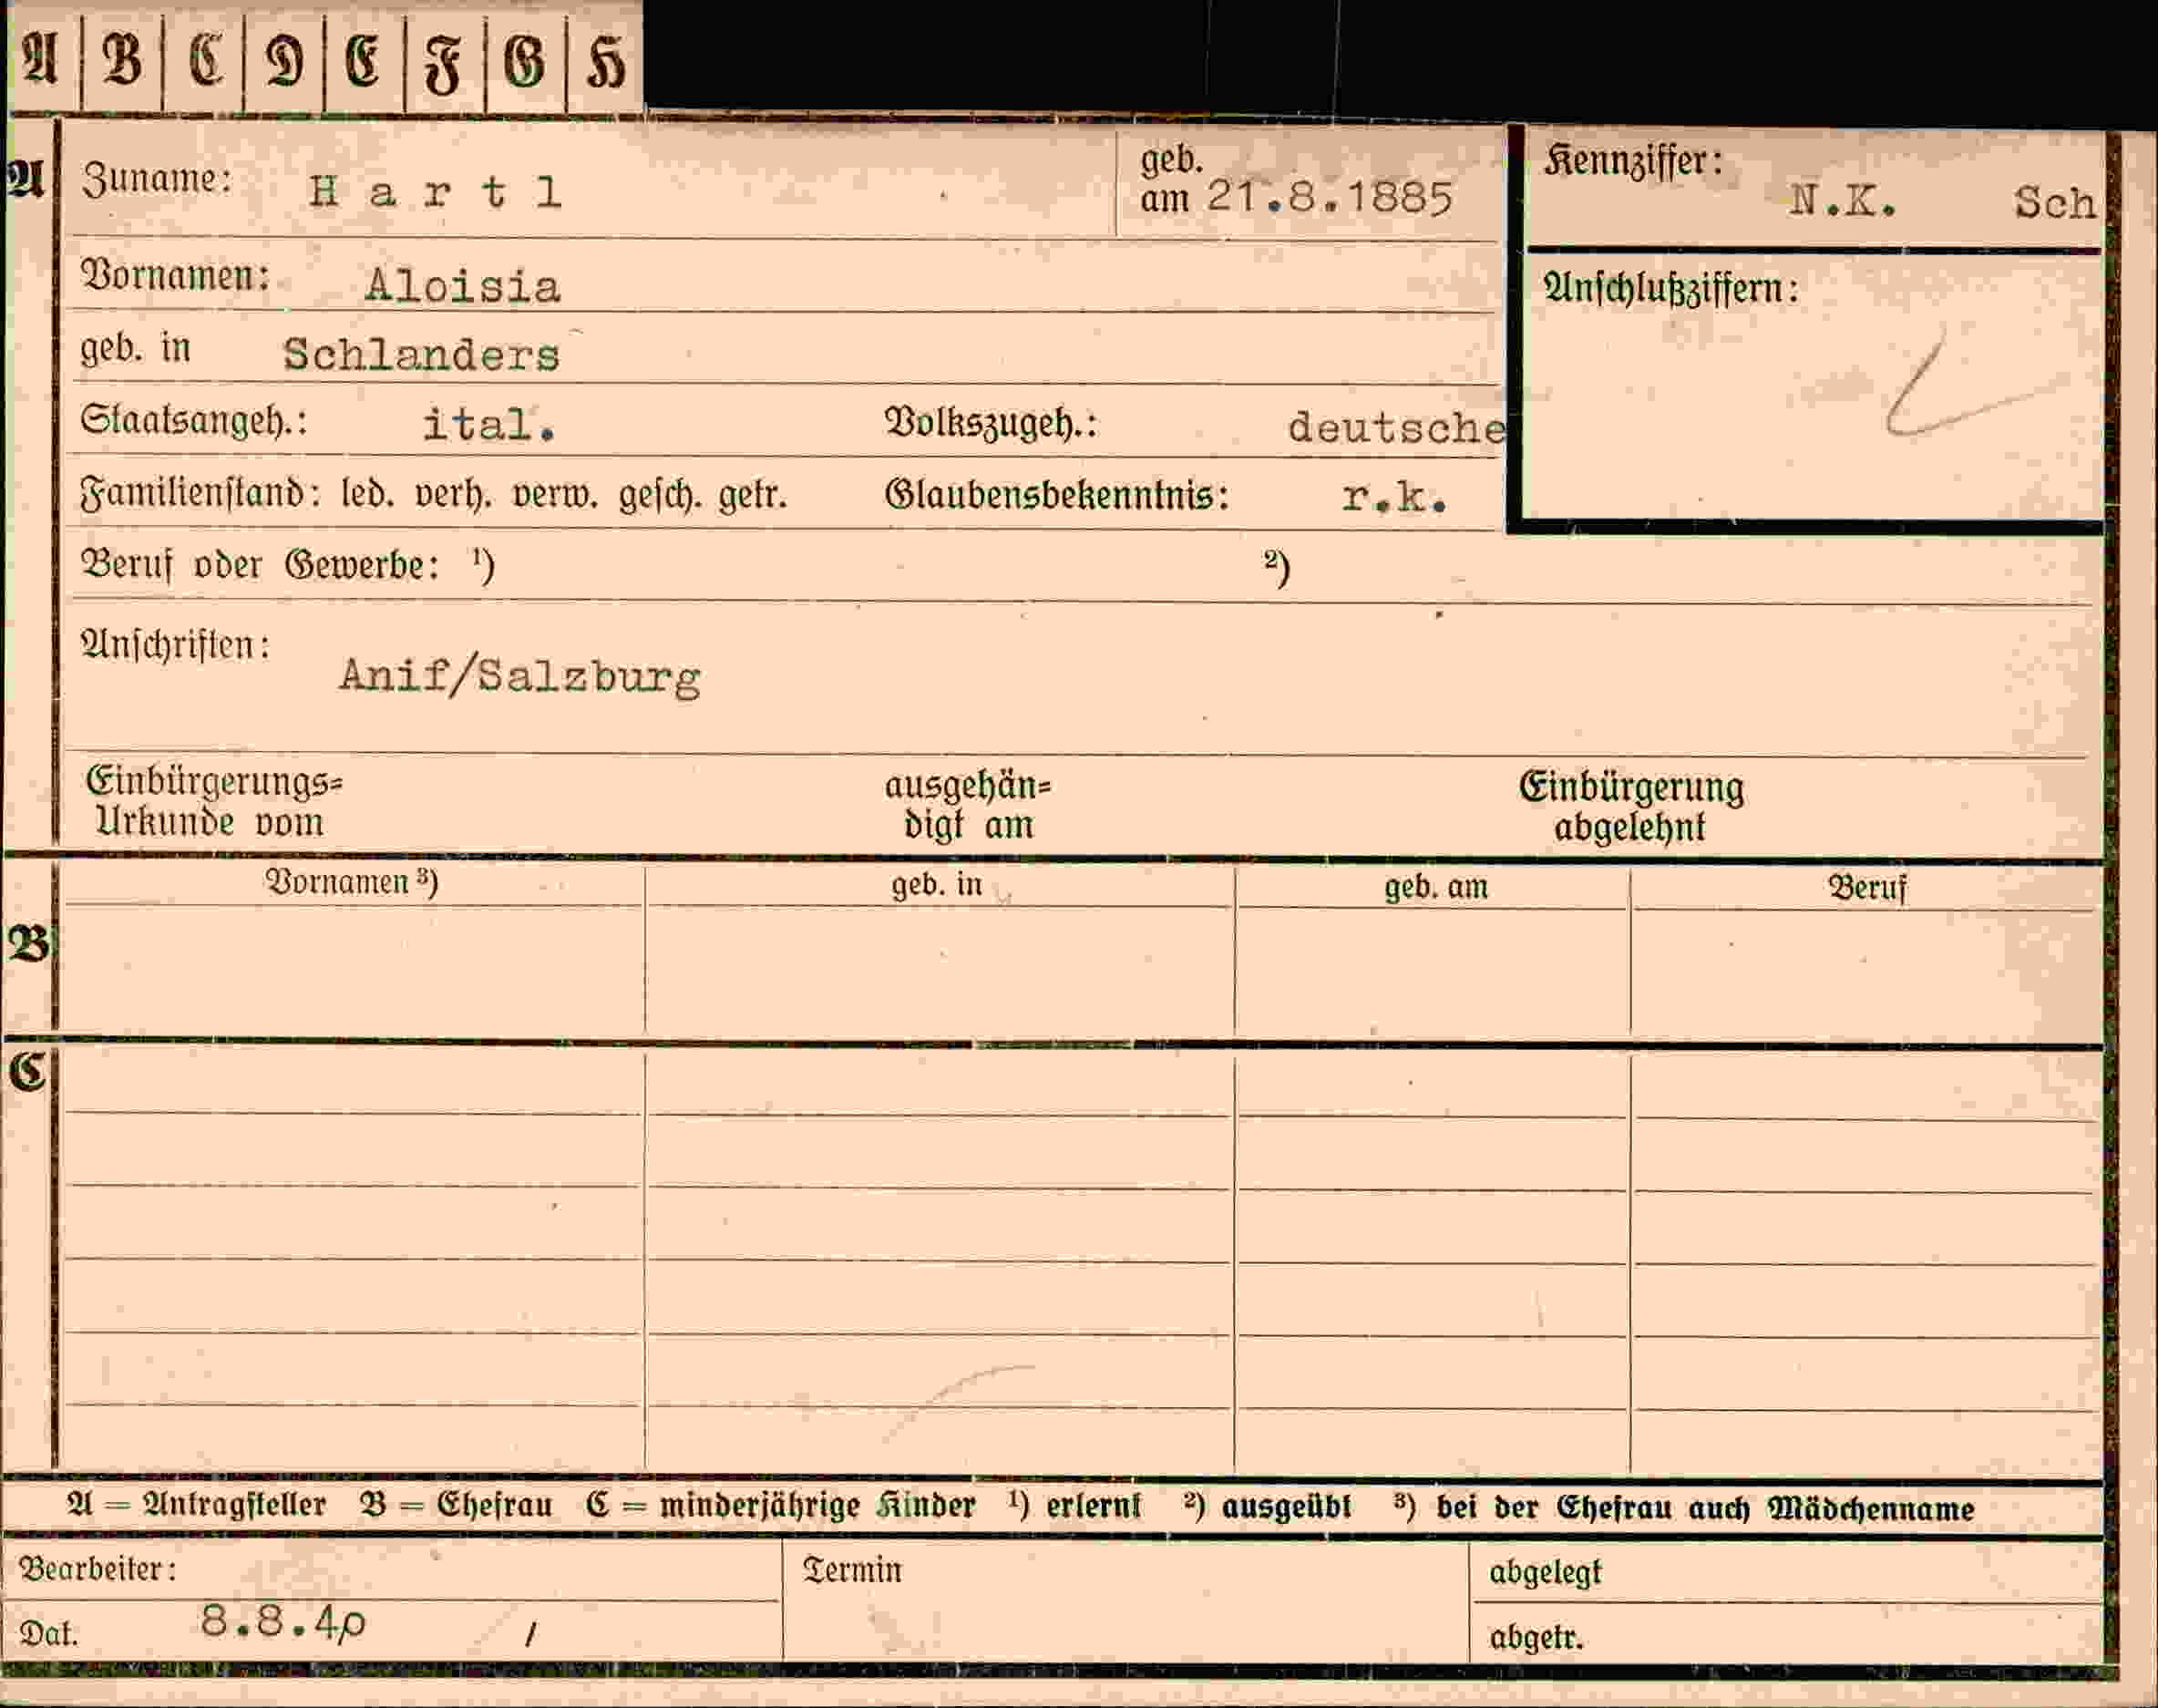 A B C D E F G H
A Zuname: Hartl geb. am 21.8.1885 Kennziffer: N.K. Sch
Vornamen: Aloisia
Anschlußziffern:
geb. in Schlanders
Staatsangeh.: ital. Volkszugeh.: deutsche
Familienstand: led. verh. verw. gesch. getr. Glaubensbekenntnis: r.k.
Beruf oder Gewerbe: ¹) ²)
Anschriften:
Anif/Salzburg
Einbürgerungs= ausgehän= Einbürgerung
Urkunde vom digt am abgelehnt
Vornamen ³) geb. in geb. am Beruf
B
C
A = Antragsteller B = Ehefrau C = minderjährige Kinder ¹) erlernt ²) ausgeübt ³) bei der Ehefrau auch Mädchenname
Bearbeiter: Termin abgelegt
Dat. 8.8.40 / abgetr.